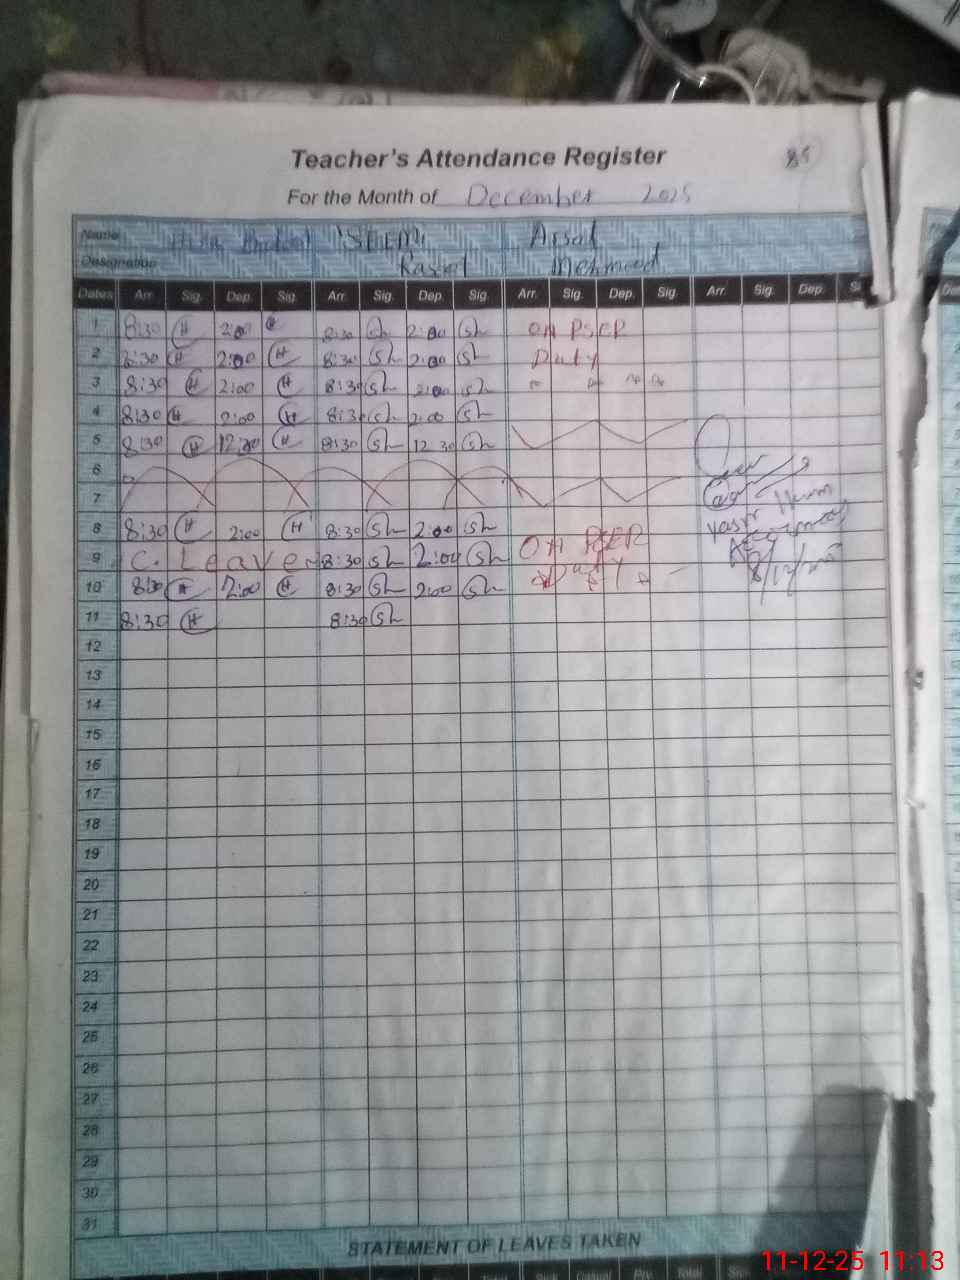 Teacher's Attendance Register
85
For the Month of December 2025
Name Huda SHEEMI Arsal
Designation Rasool Mehmood
Dates Arr. Sig. Dep. Sig. Arr. Sig. Dep. Sig. Arr. Sig. Dep. Sig. Arr. Sig. Dep.
1 8:30 H 2:00 H 8:30 Sh 2:00 Sh ON PSER
2 8:30 H 2:00 H 8:30 Sh 2:00 Sh Duty
3 8:30 H 2:00 H 8:30 Sh 2:00 Sh
4 8:30 H 2:00 H 8:30 Sh 2:00 Sh
5 8:30 H 12:30 H 8:30 Sh 12:30 Sh
6
7
8 8:30 H 2:00 H 8:30 Sh 2:00 Sh
9 C. Leave 8:30 Sh 2:00 Sh ON PSER
10 8:30 H 2:00 H 8:30 Sh 2:00 Sh Duty
11 8:30 H 8:30 Sh
12
13
14
15
16
17
18
19
20
21
22
23
24
25
26
27
28
29
30
31
STATEMENT OF LEAVES TAKEN
11-12-25 11:13